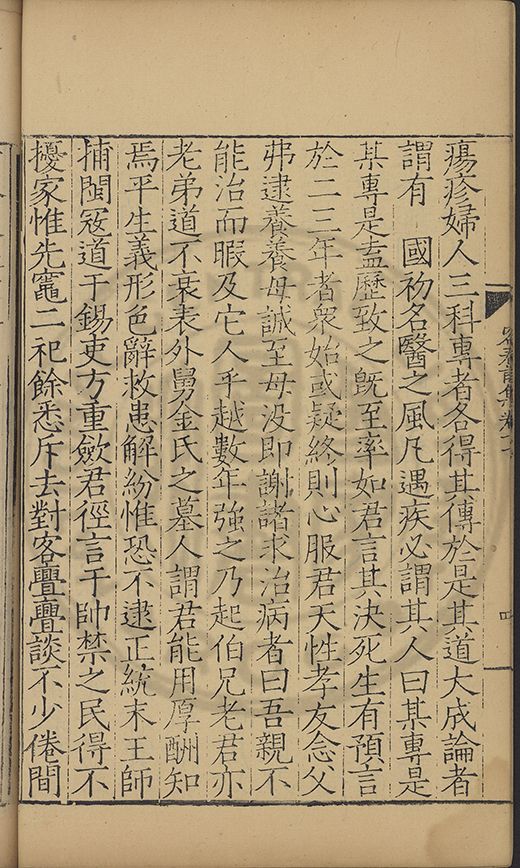 瘍疹婦人三科專者各得其傳於是其道大成論者
謂有　國初名醫之風凡遇疾必謂其人曰某專是
某專是盍歷致之既至率如君言其決死生有預言
於二三年者衆始或疑終則心服君天性孝友念父
弗逮養養母誠至母没即謝諸求治病者曰吾親不
能治而暇及它人乎越數年強之乃起伯兄老君亦
老弟道不衰表外舅金氏之墓人謂君能用厚酬知
焉平生義形色辭救患解紛惟恐不逮正統末王師
捕閩寇道于錫吏方重歛君徑言于帥禁之民得不
擾家惟先竈二祀餘悉斥去對客亹亹談不少倦間